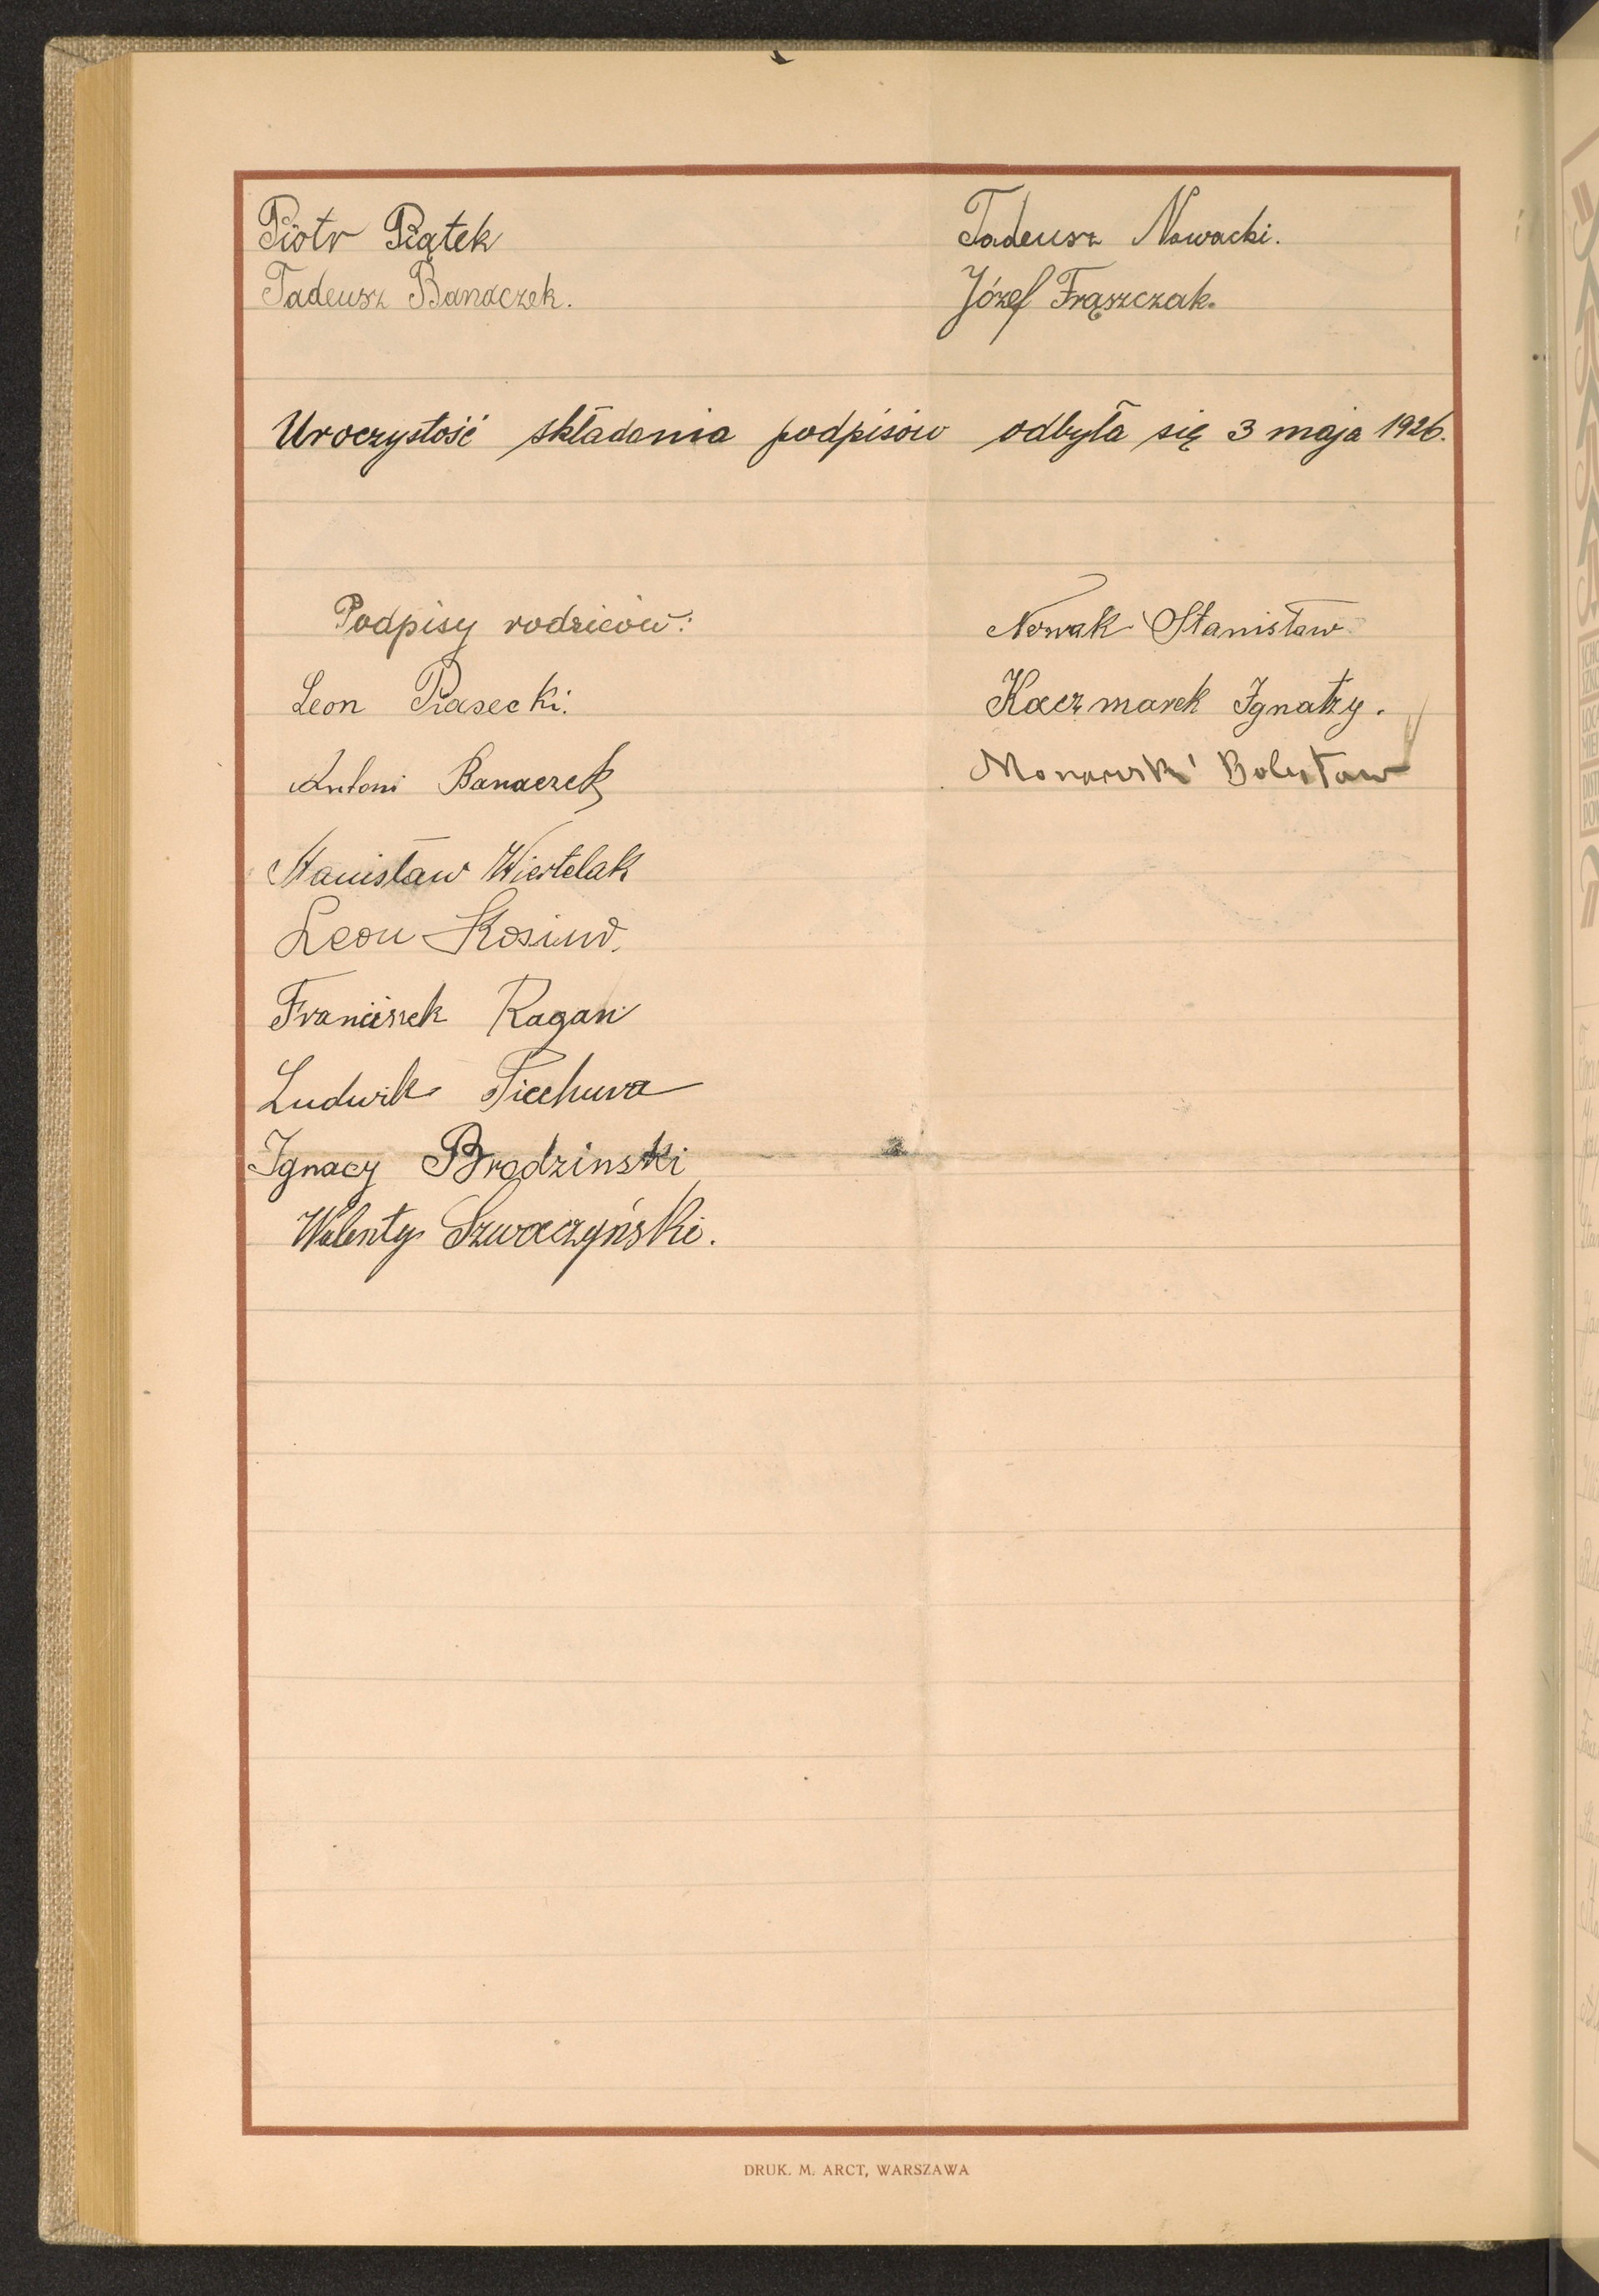 Piotr Piątek
Tadeusz Banaczek.
Tadeusz Nowacki.
Józef Frąszczak.
Uroczystość składania podpisów odbyła się 3 maja 1926.
Podpisy rodziców:
Leon Piasecki.
Antoni Banaczek
Stanisław Wiertelak
Leon
Franciszek Ragan
Ludwik Piechura
Ignacy Brodzinski
Walenty Szwaczyński.
Nowak Stanisław
Kaczmarek Ignatzy.
Bolesław
DRUK. M. ARCT, WARSZAWA